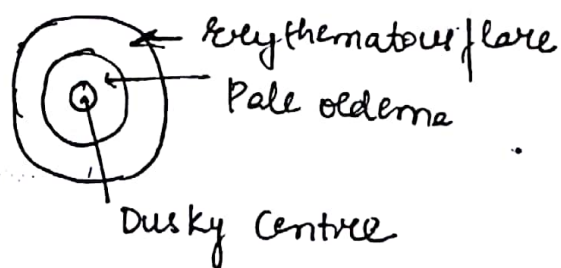 Erythematous flare
Pale oedema
Dusky Centre